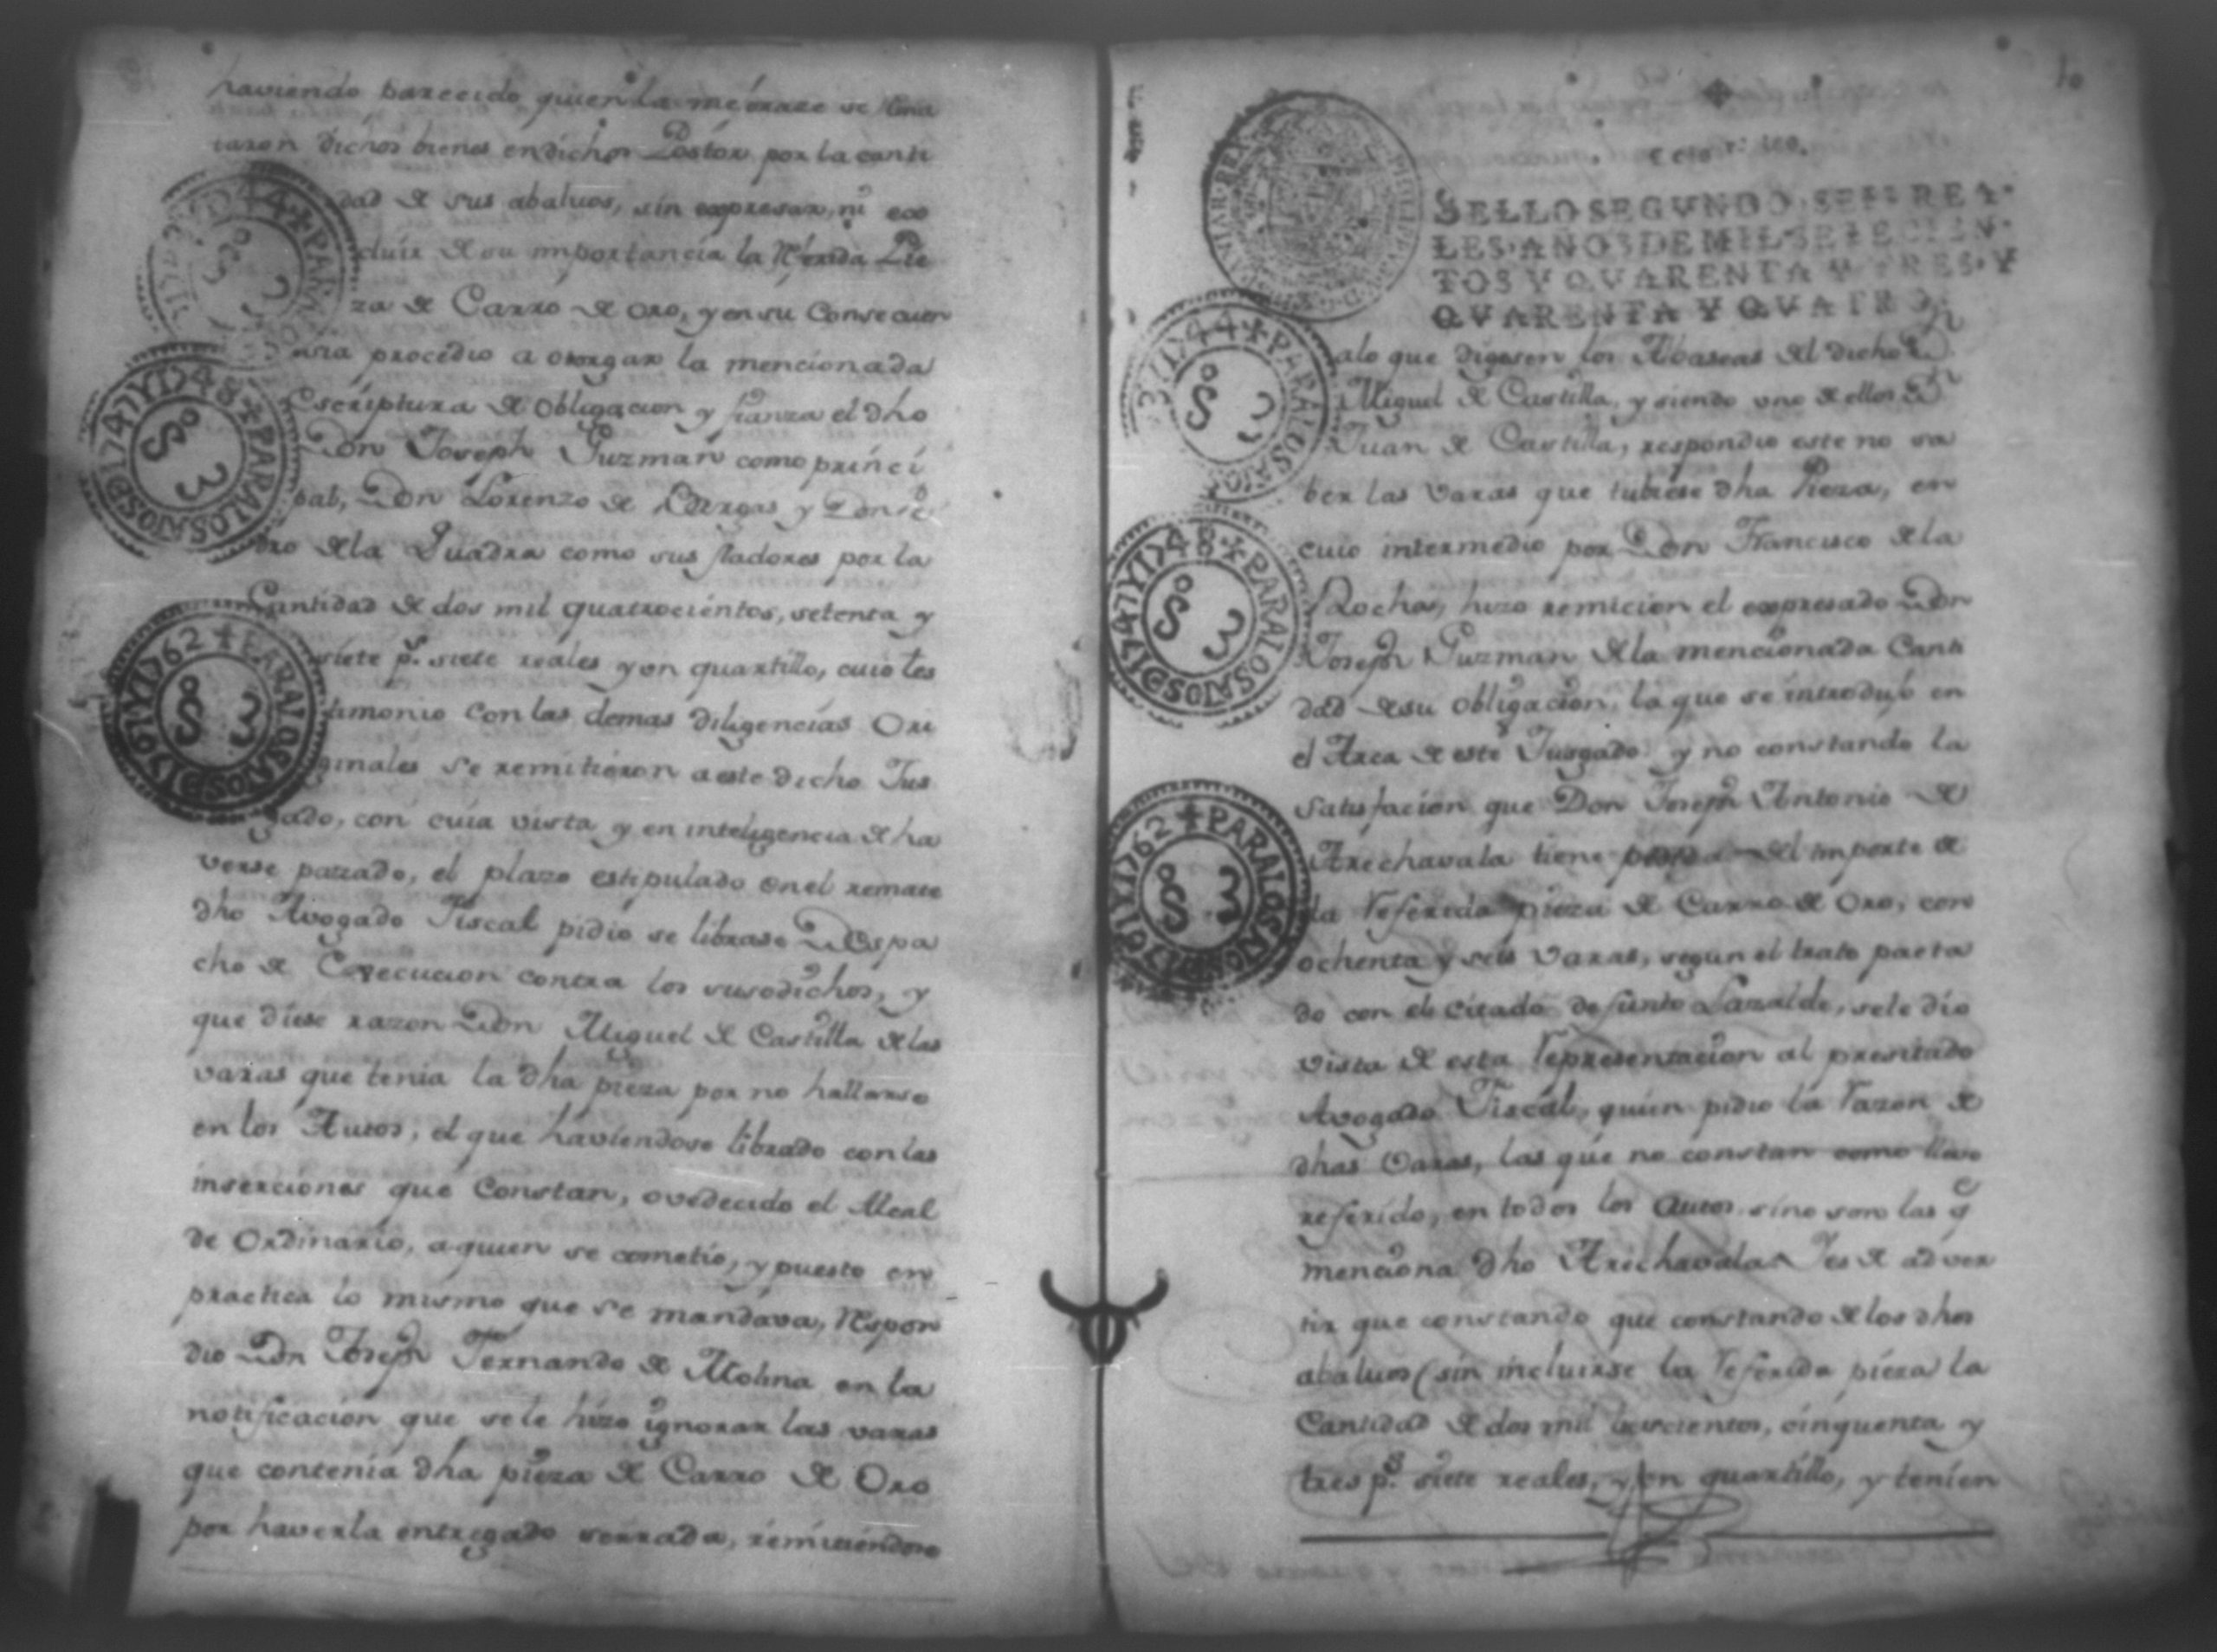 haviendo parecido quien la mejorase se rema
taron dichos bienes en dicho Postor por la canti
dad de sus abaluos, sin expresar, ni exc
cluir de su importancia la referida Pie
za de Carro de Oro, y en su Consecuen
cia procedio a otorgar la mencionada
Escriptura de obligacion y fianza el dho
Don Joseph Guzman como princi
pal, Don Lorenzo de Vargas y Don Pe
dro de la Quadra como sus fiadores por la
Cantidad de dos mil quatrocientos, setenta y
siete ps. siete reales y un quartillo, cuio tes
timonio con las demas diligencias Ori
ginales se remitieron a este dicho Jus
gado, con cuia vista y en inteligencia de ha
verse pazado, el plazo estipulado en el remate
dho Avogado Fiscal pidio se librase Despa
cho de Execucion contra los susodichos, y
que diese razon Don Miguel de Castilla de las
varas que tenia la dha pieza por no hallarse
en los Autos, el que haviendose librado con las
inserciones que Constan, ovedecido el Alcal
de Ordinario, a quien se cometio, y puesto en
practica lo mismo que se mandava, Respon
dio Dn Joseph Fernando de Molina en la
notificacion que se le hizo ignorar las varas
que contenia dha pieza de Carro de Oro
por haverla entregado serrada, remitiendose
10
SELLO SEGVNDO, SEIS REA-
LES, AÑOS DE MIL SETECIEN-
TOS Y QVARENTA Y TRES, Y
QVARENTA Y QVATRO.
alo que digesen los Albaseas del dicho Dn
Miguel de Castilla, y siendo uno de ellos Dn
Juan de Castilla, respondio este no sa
ber las varas que tubiese dha Pieza, en
cuio intermedio por Don Francisco de la
Rocha, hizo remicion el expresado Don
Joseph Guzman de la mencionada Canti
dad de su obligacion, la que se introdujo en
el Arca de este Jusgado y no constando la
satisfacion que Don Joseph Antonio de
Arechavala tiene del importe de
la referida pieza de Carro de Oro, con
ochenta y seis varas, segun el trato pacta
do con el citado defunto Lazalde, se le dio
vista de esta representacion al presitado
Avogado Fiscal, quien pidio la razon de
dhas varas, las que no constan como llevo
referido, en todos los autos, sino son las q
menciona dho Arechavala. Y es de adver
tir que constando que constando de los dhos
abaluos (sin incluirse la referida pieza) la
Cantidad de dos mil trescientos, cinquenta y
tres ps. siete reales, y un quartillo, y tenien
PARA LOS AÑOS DE 1743 Y 1744
PARA LOS AÑOS DE 1747 Y 1748
PARA LOS AÑOS DE 1761 Y 1762